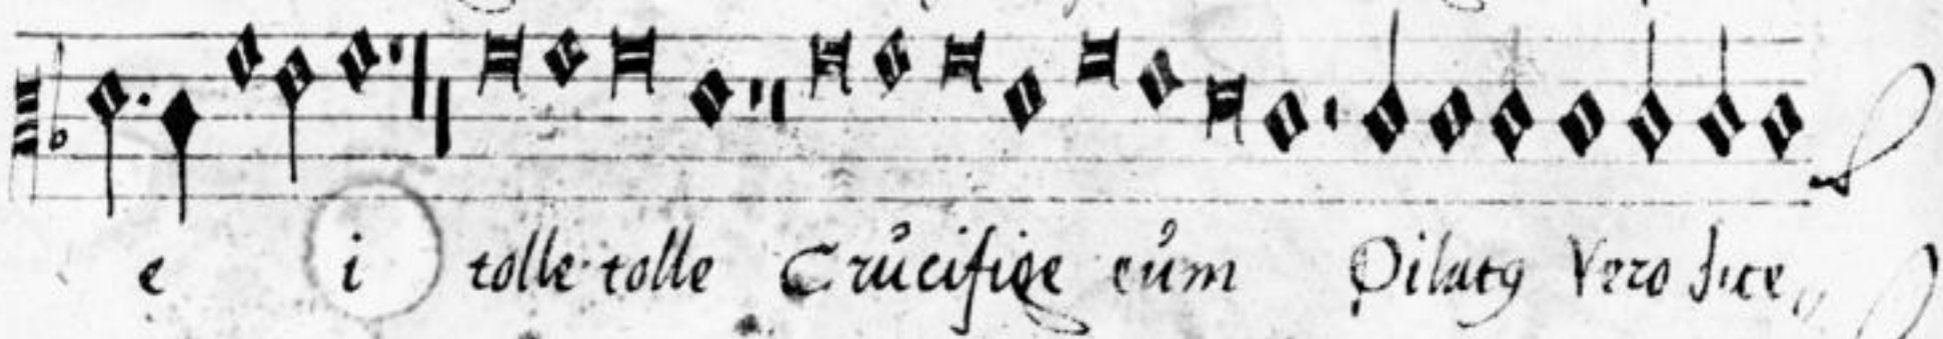 e i tolle tolle Crucifige eum Pilatꝰ Vero dice